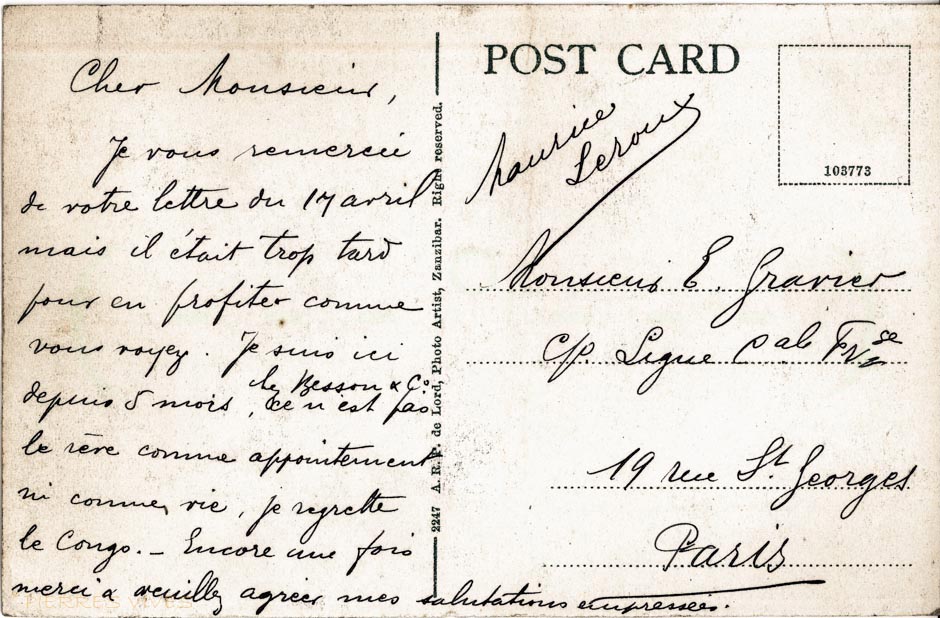 Cher Monsieur,
Je vous remercie
de votre lettre du 17 avril
mais il était trop tard
pour en profiter comme
vous voyez. Je suis ici
chez Besson & Cº
depuis 5 mois, ce n'est pas
le rêve comme appointement
ni comme vie, je regrette
le Congo. _ Encore une fois
merci & veuillez agréer mes salutations empressées.
2247 A. R. P. de Lord, Photo Artist, Zanzibar. Right reserved.
POST CARD
103773
Maurice
Leroux
Monsieur E. Gravier
c/o Ligue Cale Frse
19 rue St Georges
Paris